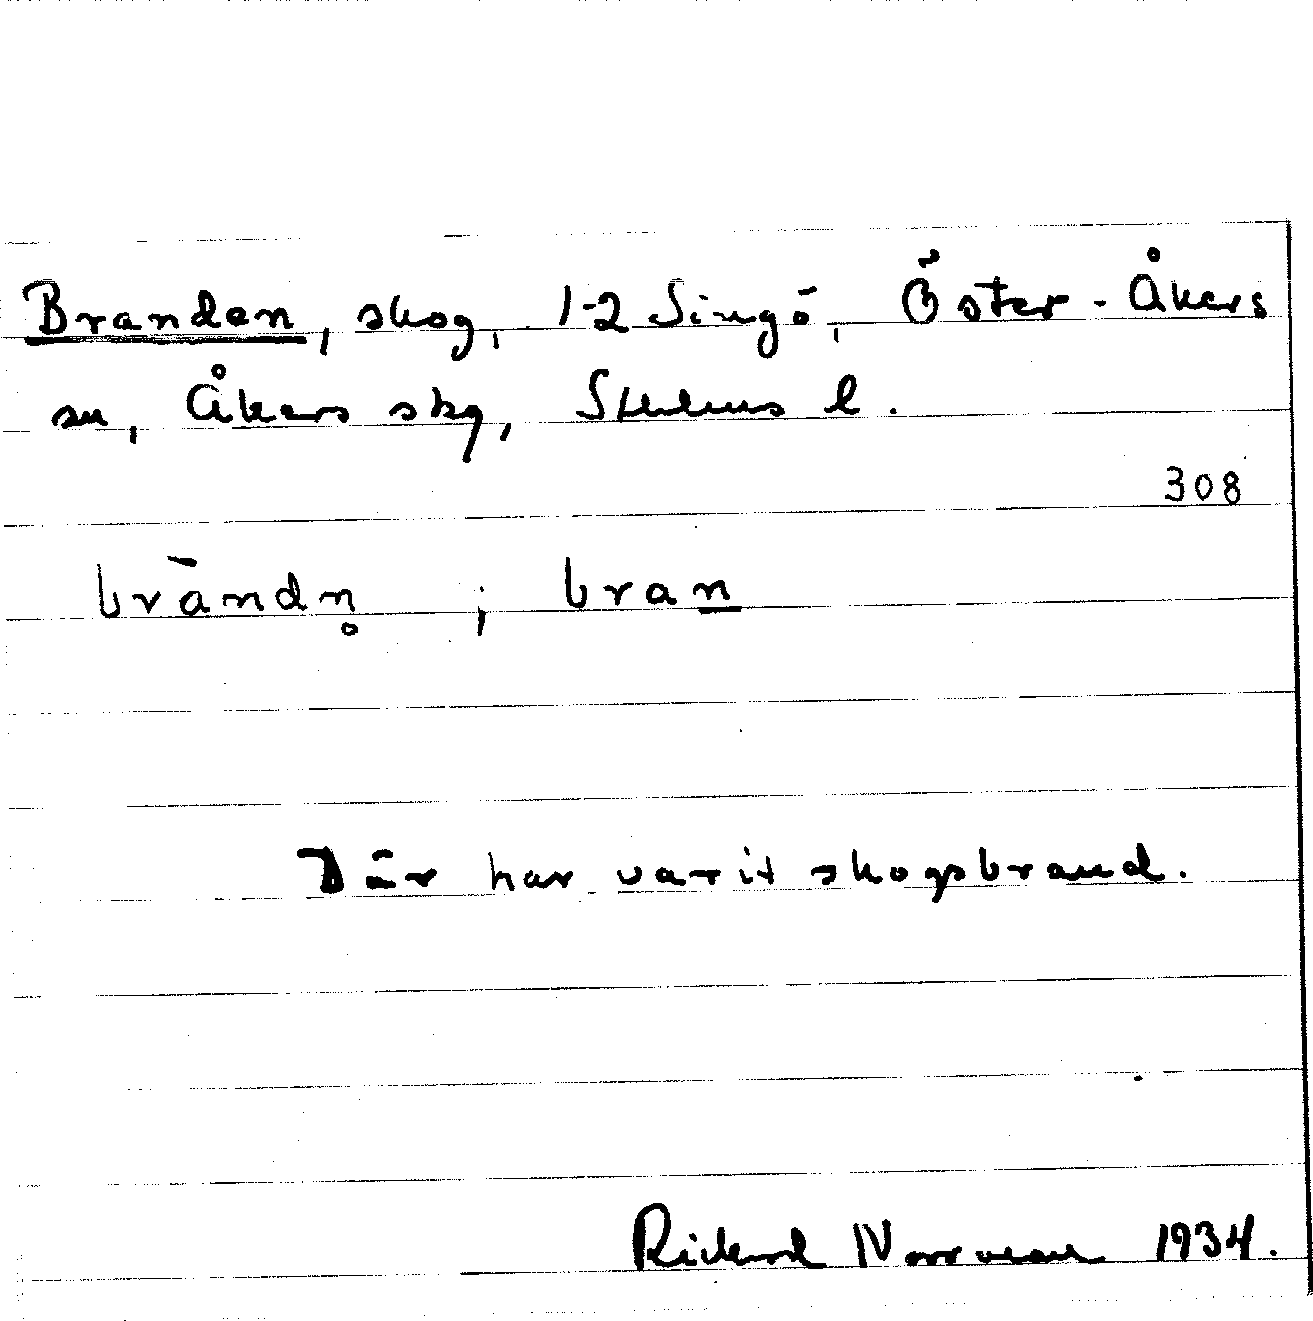 Branden, skog, 1-2 Singö, Öster-Åkers
sn, Åkers skg, Sthlms l.
308
bràndn̥ ; bran
Där har varit skogsbrand.
Rickard Norrman 1934.